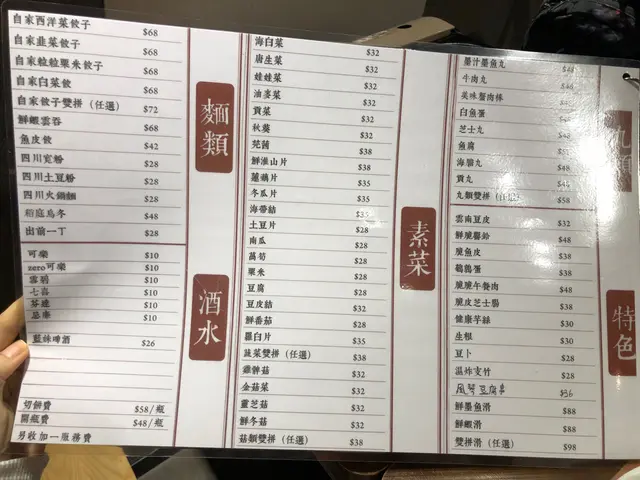 自家西洋菜餃子 $68
自家韭菜餃子 $68
自家粒粒粟米餃子 $68
自家白菜餃 $68
自家餃子雙拼(任選) $72
鮮蝦雲吞 $68
魚皮餃 $42
四川寬粉 $28
四川土豆粉 $28
四川火鍋麵 $28
稻庭烏冬 $48
出前一丁 $28
麵類
可樂 $10
zero可樂 $10
雪碧 $10
七喜 $10
$10
忌廉 $10
藍妹啤酒 $26
酒水
切餅費 $58/瓶
開瓶費 $48/瓶
另收加一服務費
海白菜 $32
唐生菜 $32
娃娃菜 $32
油麥菜 $32
貢菜 $32
秋葵 $32
芫茜 $38
鮮淮山片 $38
蓮藕片 $35
冬瓜片 $35
海帶結
土豆片 $28
南瓜 $28
萵筍 $28
粟米 $28
豆腐 $28
豆皮結 $32
鮮番茄 $28
蘿白片 $35
蔬菜雙拼(任選) $38
雞髀菇 $32
金菇菜 $32
靈芝菇 $32
鮮冬菇 $32
菇類雙拼(任選) $38
素菜
墨汁墨魚丸
牛肉丸
美味蟹肉棒
白魚蛋
芝士丸
魚腐
海膽丸 $48
貢丸
丸類雙拼 $58
雲南豆皮 $32
鮮脆響鈴 $48
脆魚皮 $38
鵪鶉蛋 $38
脆脆午餐肉 $48
脆皮芝士腸 $38
健康芋絲 $30
生根 $30
豆卜 $28
溫炸支竹 $28
風琴豆腐串 $36
鮮墨魚滑 $88
鮮蝦滑 $88
雙拼滑(任選) $98
特色